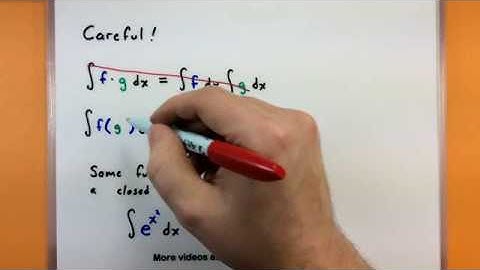 Careful!
∫ f · g dx = ∫ f dx ∫ g dx
∫ f( g )
Some
a closed
∫ e^{x^2} dx
More videos